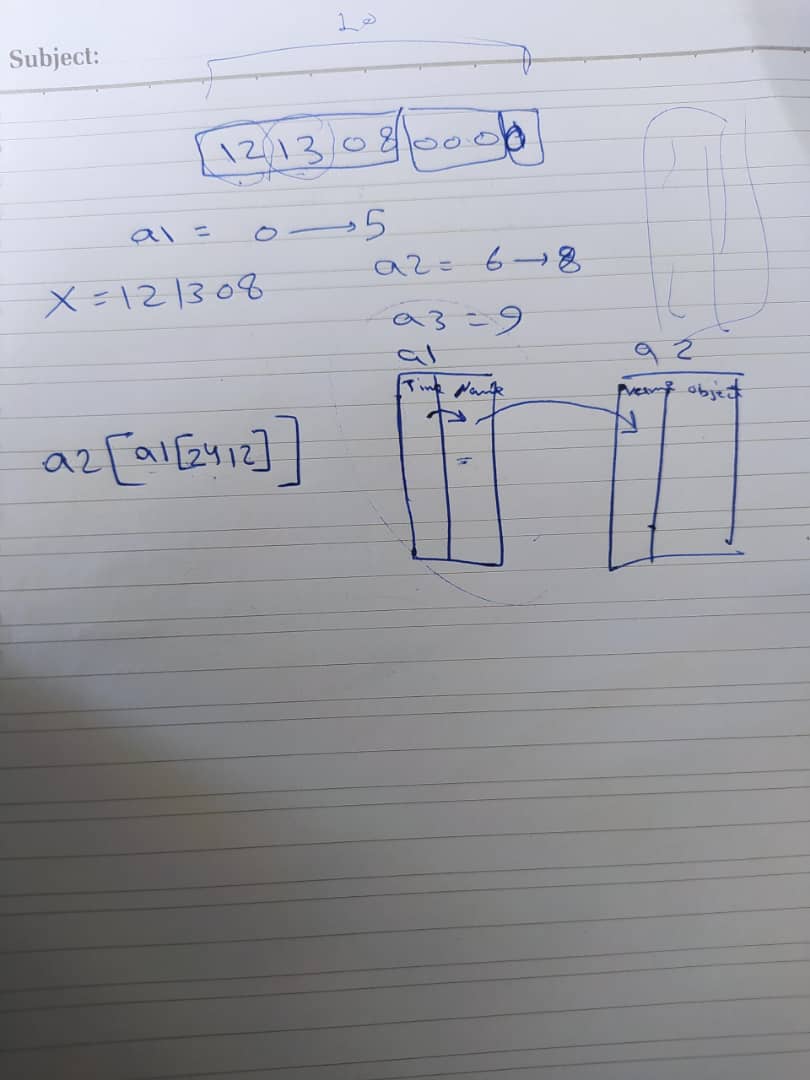 10
Subject:
12 13 08 000 0
a1 = 0 → 5
a2 = 6 → 8
X = 121308
a3 = 9
a1
a2
Time Name
Name object
a2[a1[2412]]
=